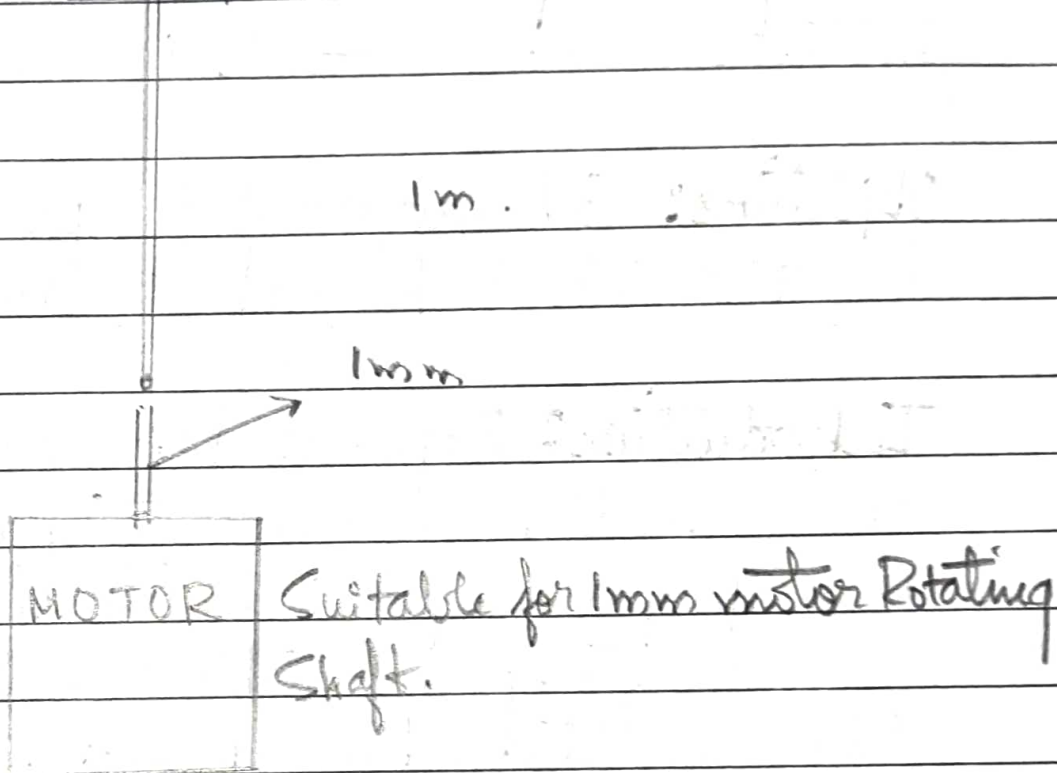 1m.
1mm
MOTOR
Suitable for 1mm motor Rotating
Shaft.